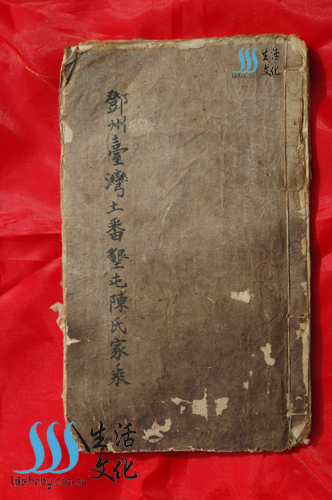 生活
文化
鄧州臺灣土番墾屯陳氏家乘
生活
文化